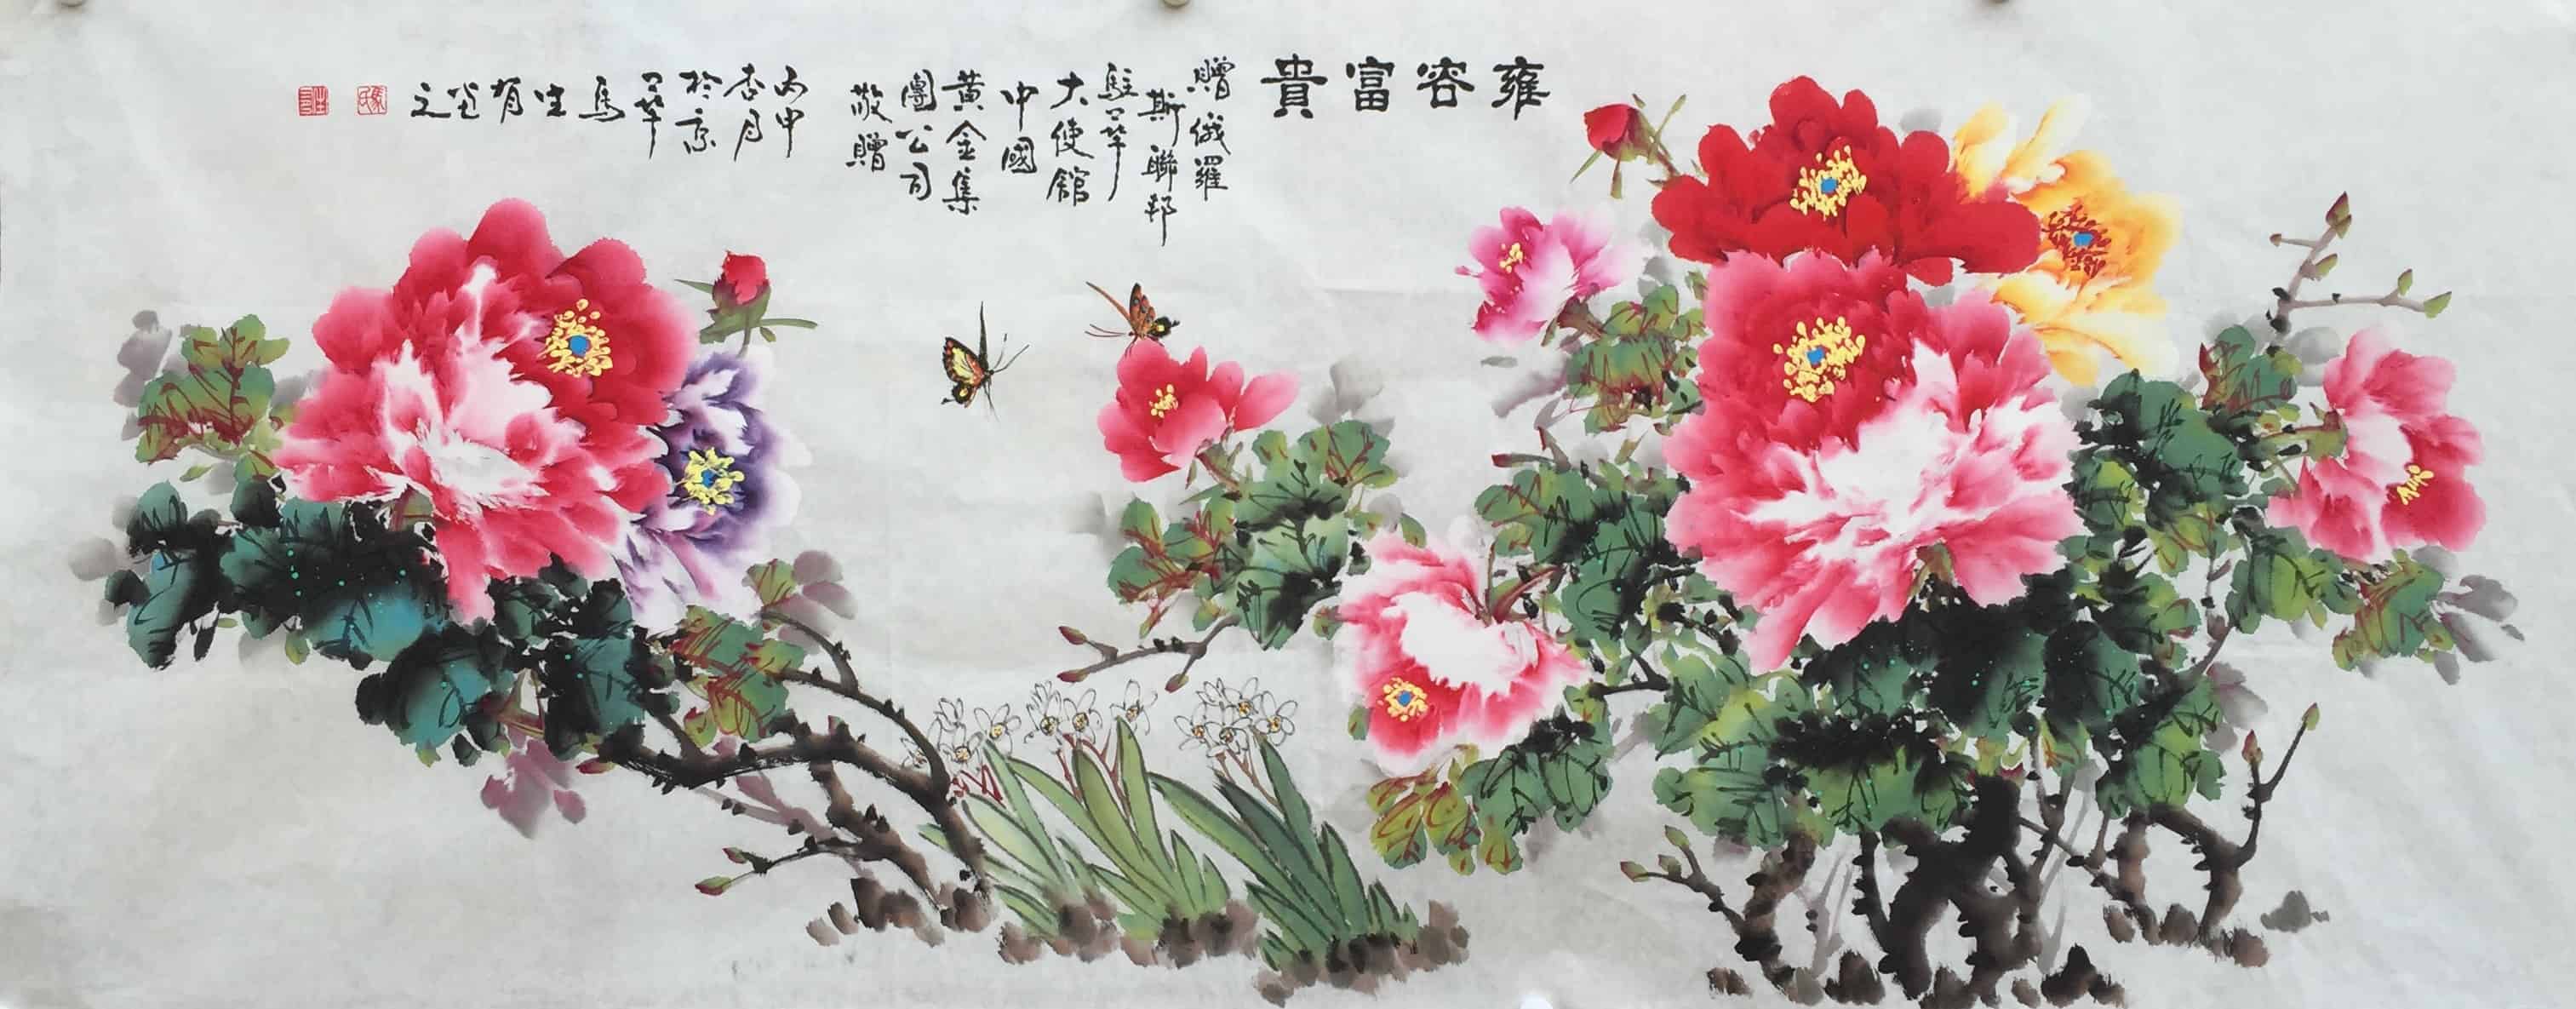 雍容富貴
贈俄羅
斯聯邦
駐華
大使館
中國
黄金集
團公司
敬贈
丙申
杏月
於京
華
馬
生
有
之
馬氏